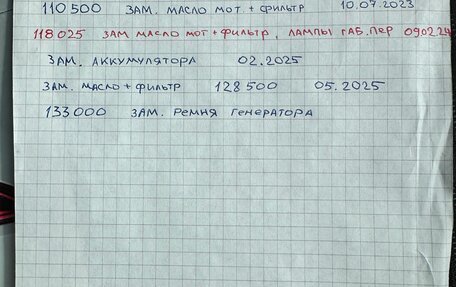 110 500 ЗАМ. МАСЛО МОТ + ФИЛЬТР 10.07.2023
118 025 ЗАМ МАСЛО МОТ + ФИЛЬТР, ЛАМПЫ ГАБ. ПЕР 09.02.24
ЗАМ. АККУМУЛЯТОРА 02.2025
ЗАМ. МАСЛО + ФИЛЬТР 128 500 05.2025
133 000 ЗАМ. РЕМНЯ ГЕНЕРАТОРА